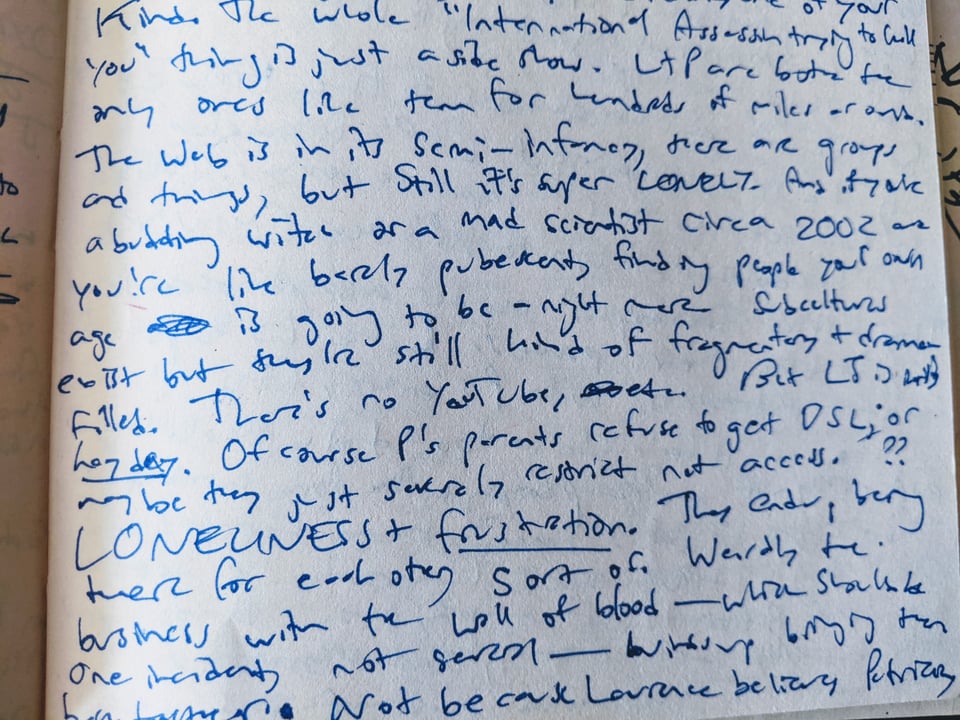 Kind. The whole "International Assassin trying to kill
you" thing is just a side show. L+P are both the
only ones like them for hundreds of miles around.
The Web is in its semi-infancy, there are groups
and things, but still it's super LONELY. And if you're
a budding witch or a mad scientist circa 2002 and
you're like barely pubescent, finding people your own
age is going to be a nightmare. Subcultures
exist but they're still kind of fragmentary + drama
filled. There's no YouTube, etc. But LJ is in its
heyday. Of course P's parents refuse to get DSL, or
maybe they just severely restrict net access. ??
LONELINESS + frustration. They end up being
there for each other, sort of. Weirdly the
business with the wall of blood — which should be
one incident, not several — winds up bringing them
Not because Laurence believes Patricia